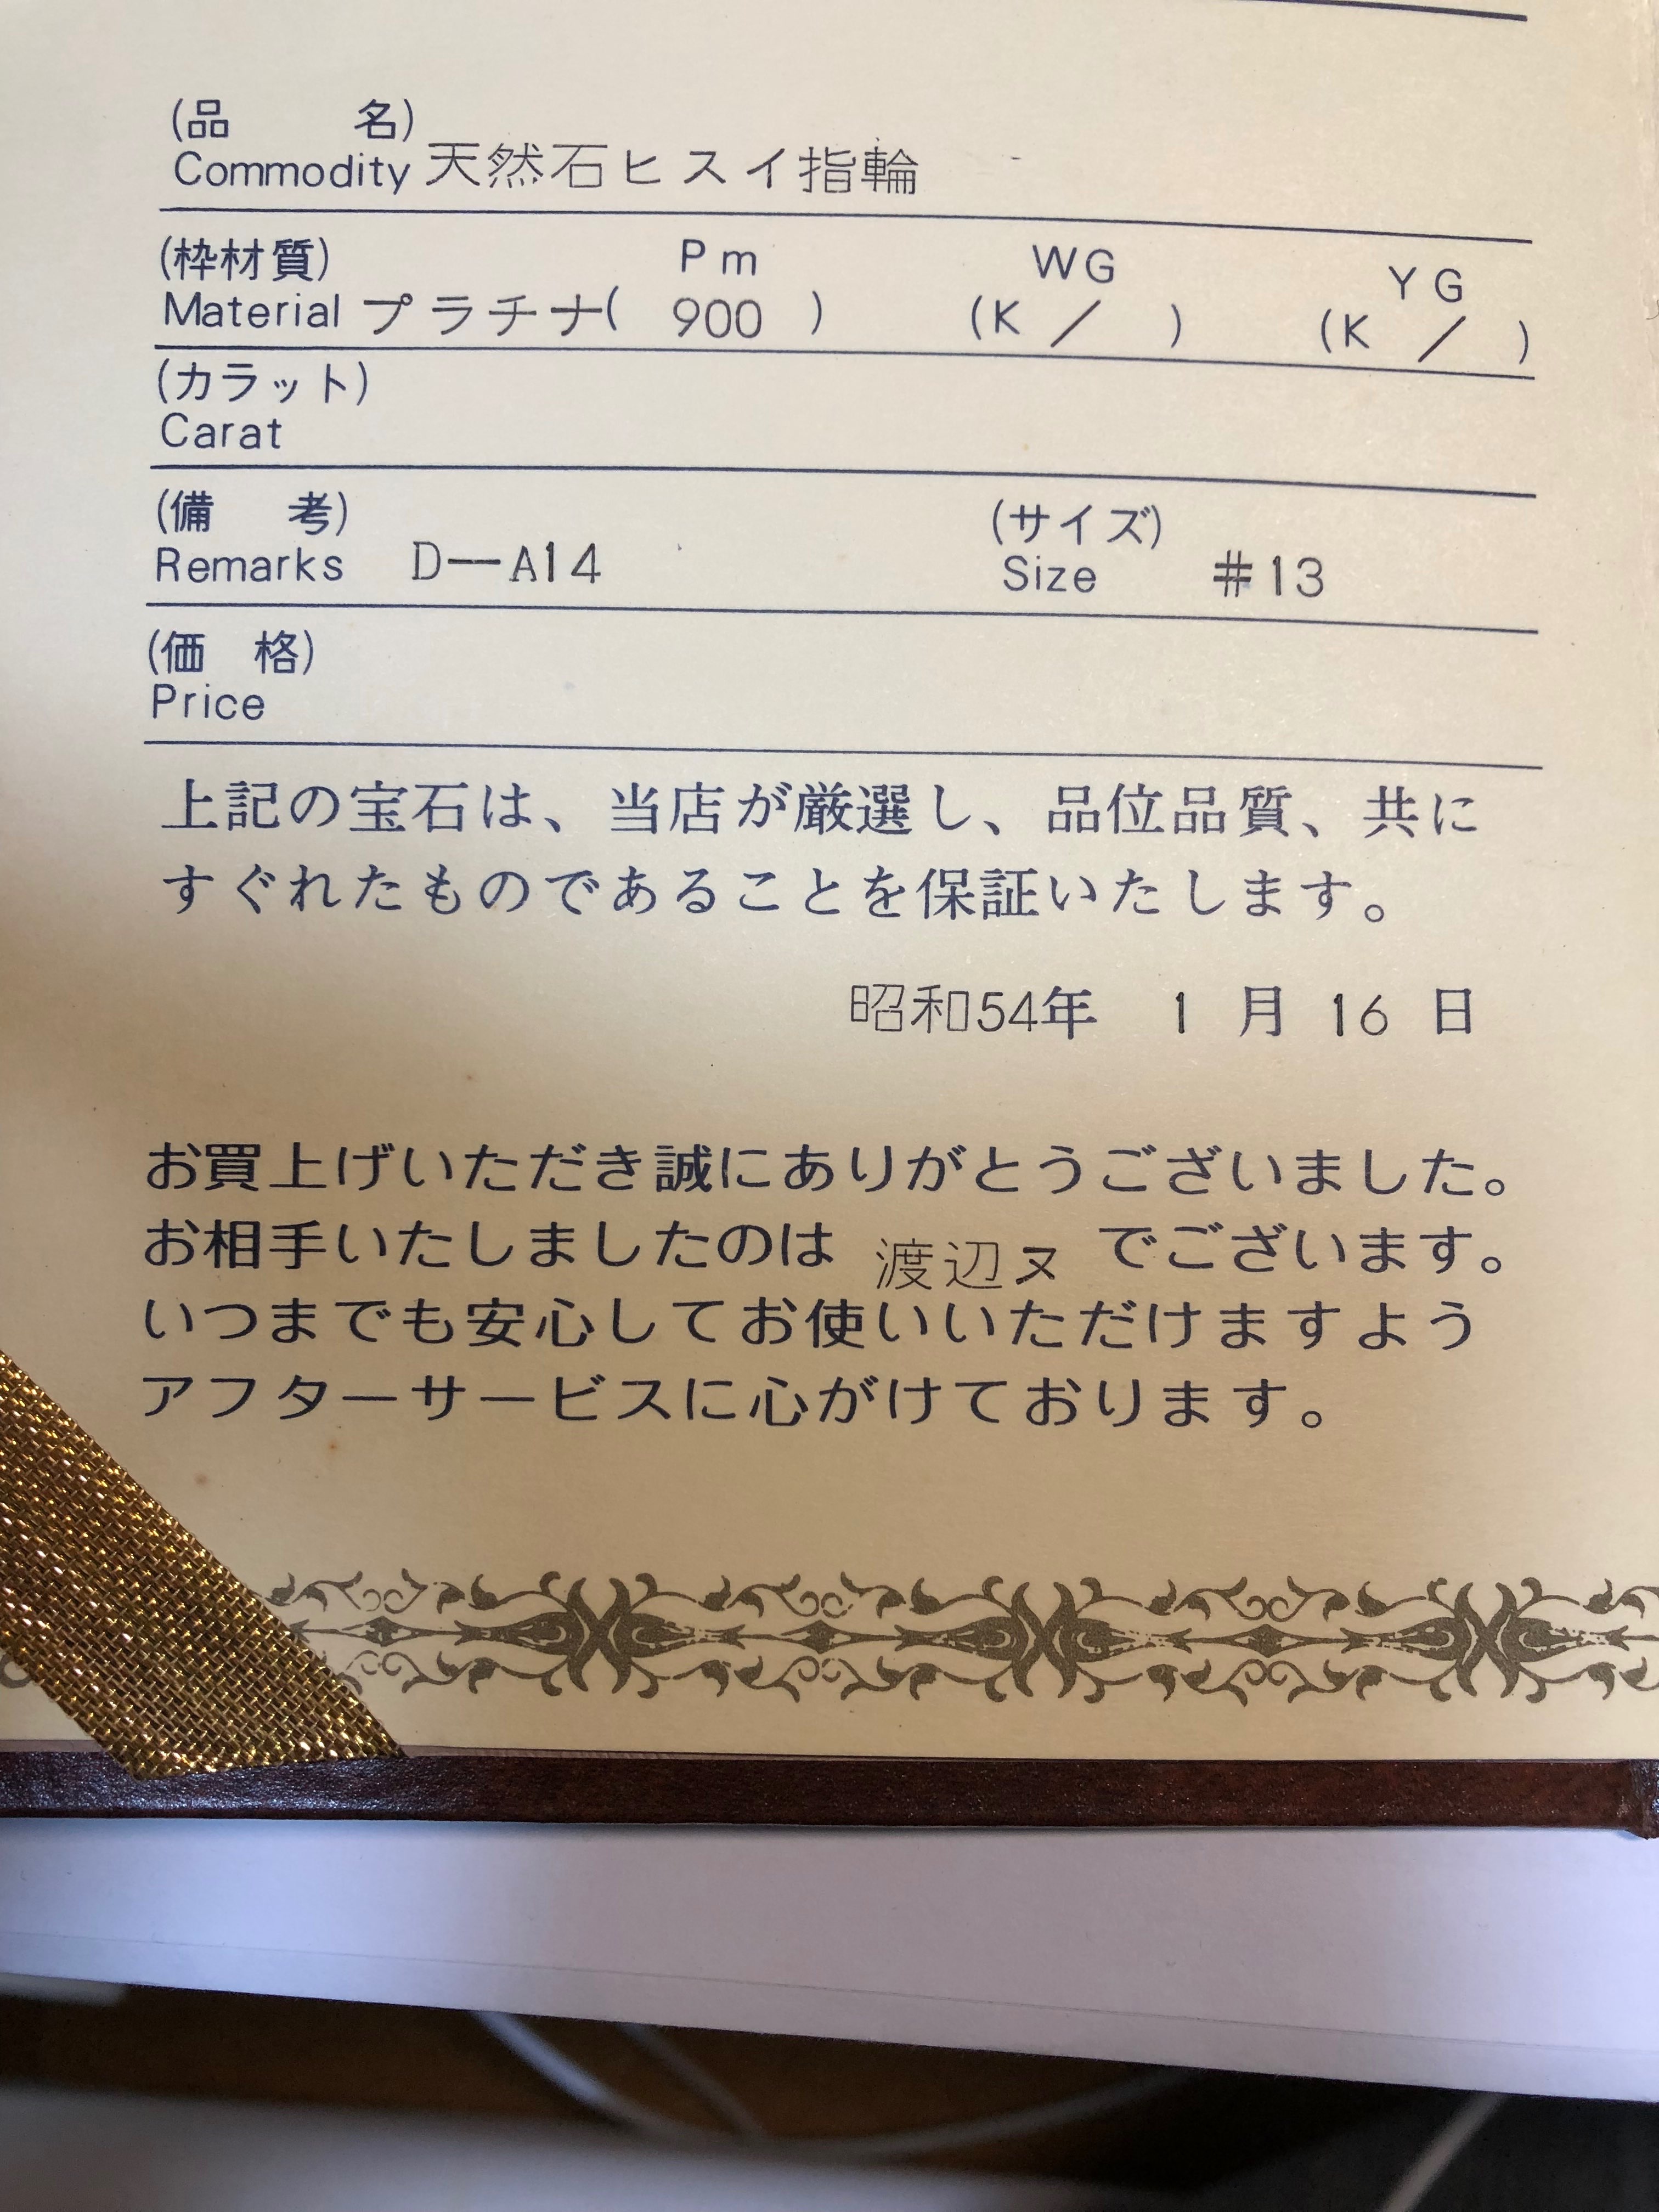 (品　名)
Commodity 天然石ヒスイ指輪
(枠材質) Pm WG YG
Material プラチナ( 900 ) (K ／ ) (K ／ )
(カラット)
Carat
(備　考) (サイズ)
Remarks D—A14 Size #13
(価　格)
Price
上記の宝石は、当店が厳選し、品位品質、共に
すぐれたものであることを保証いたします。
昭和54年 1 月 16 日
お買上げいただき誠にありがとうございました。
お相手いたしましたのは 渡辺ヌ でございます。
いつまでも安心してお使いいただけますよう
アフターサービスに心がけております。